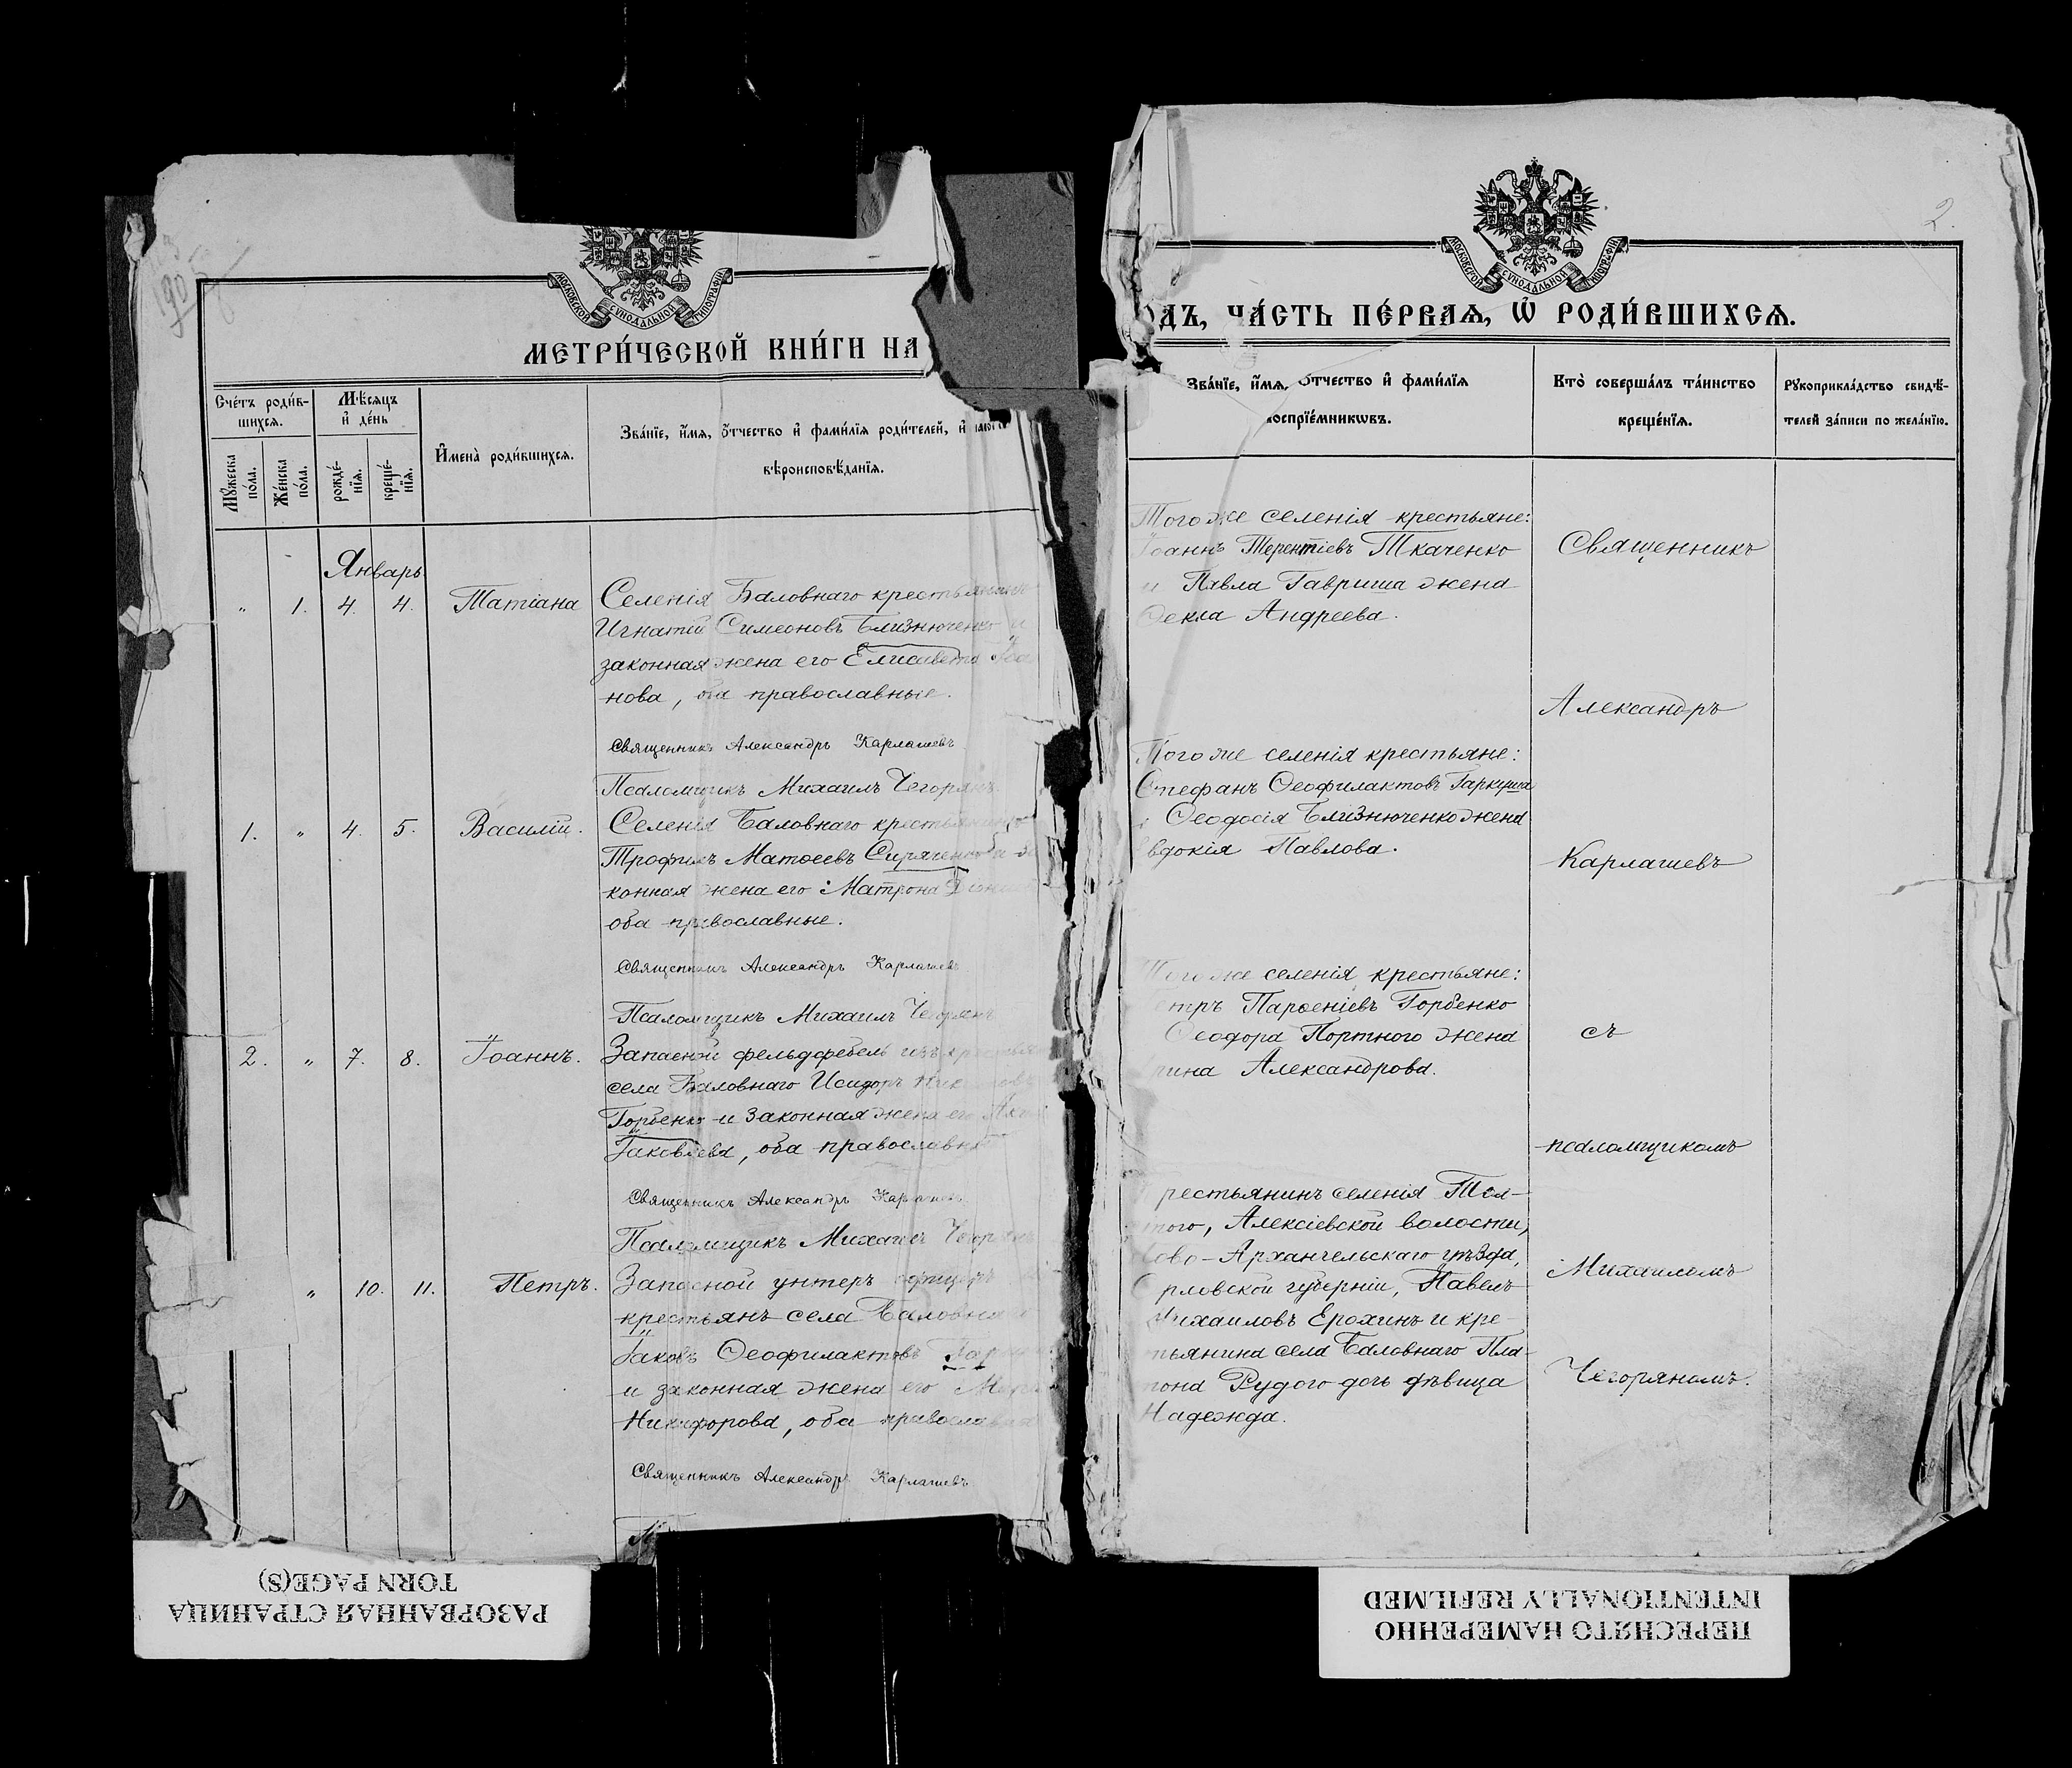 МОСКОВСКОЙ СУНОДАЛЬНОЙ ТИПОГРАФІИ
МЕТРИ́ЧЕСКОЙ КНИ́ГИ НА
Сче́тъ роди́в-
шихся.
Мѣ́сяцъ
и҆ де́нь
Му́жеска
по́ла.
Же́нска
по́ла.
рожде́-
нїя.
креще́-
нїя.
И҆мена̀ роди́вшихся.
Зва́нїе, и҆́мя, ѻ҆́тчество и҆ фами́лїя роди́телей, и҆
вѣроисповѣ́данїя.
Январь
" 1. 4. 4. Татіана
Селенія Баловнаго крестьянинъ
Игнатій Симеоновъ Близнюченко и
законная жена его Елисавета Іоа
нова, оба православные.
Священникъ Александръ Карлашевъ
Псаломщикъ Михаилъ Чегорянъ
1. " 4. 5. Василій.
Селенія Баловнаго крестьянинъ
Трофимъ Матѳеевъ и за
конная жена его Матрона
оба православные.
Священникъ Александръ Карлашевъ
Псаломщикъ Михаилъ Чегорянъ
2. " 7. 8. Іоаннъ.
Запасной фельдфебель изъ
села Баловнаго Исидоръ
Горбенко и законная жена его
Іаковлева, оба православные
Священникъ Александръ Карлашевъ
Псаломщикъ Михаилъ Чегорянъ
" 10. 11. Петръ.
Запасной унтеръ офицеръ
крестьянъ села Баловнаго
Іаковъ Ѳеофилактовъ
и законная жена его
Никифорова, оба православные
Священникъ Александръ Карлашевъ
МОСКОВСКОЙ СУНОДАЛЬНОЙ ТИПОГРАФІИ
2.
ОДЪ, ЧА́СТЬ ПЕ́РВАЯ, Ѡ҆ РОДИ́ВШИХСЯ.
Зва́нїе, и҆́мя, ѻ҆́тчество и҆ фами́лїя
воспрїе́мникѡвъ.
Кто̀ соверша́лъ та́инство
креще́нїя.
Рукоприкла́дство свидѣ́-
телей за́писи по жела́нїю.
Того же селенія крестьяне:
Іоаннъ Терентіевъ Ткаченко
и Павла Гавриша жена
Ѳекла Андреева.
Того же селенія крестьяне:
Стефанъ Ѳеофилактовъ Гаркуша
и Ѳеодосія Близнюченко жена
Евдокія Павлова.
Того же селенія крестьяне:
етръ Парѳеніевъ Горбенко
Ѳеодора Портного жена
рина Александрова.
рестьянинъ селенія
того, Алексіевской волости,
ово-Архангельскаго уѣзда,
Орловской губерніи, Павелъ
Михаиловъ Ерохинъ и кре-
тьянина села Баловнаго Пла-
тона Рудого дочь дѣвица
Надежда.
Священникъ
Александръ
Карлашевъ
съ
псаломщикомъ
Михаиломъ
Чегоряномъ.
РАЗОРВАННАЯ СТРАНИЦА
TORN PAGE(S)
ПЕРЕСНЯТО НАМЕРЕННО
INTENTIONALLY REFILMED